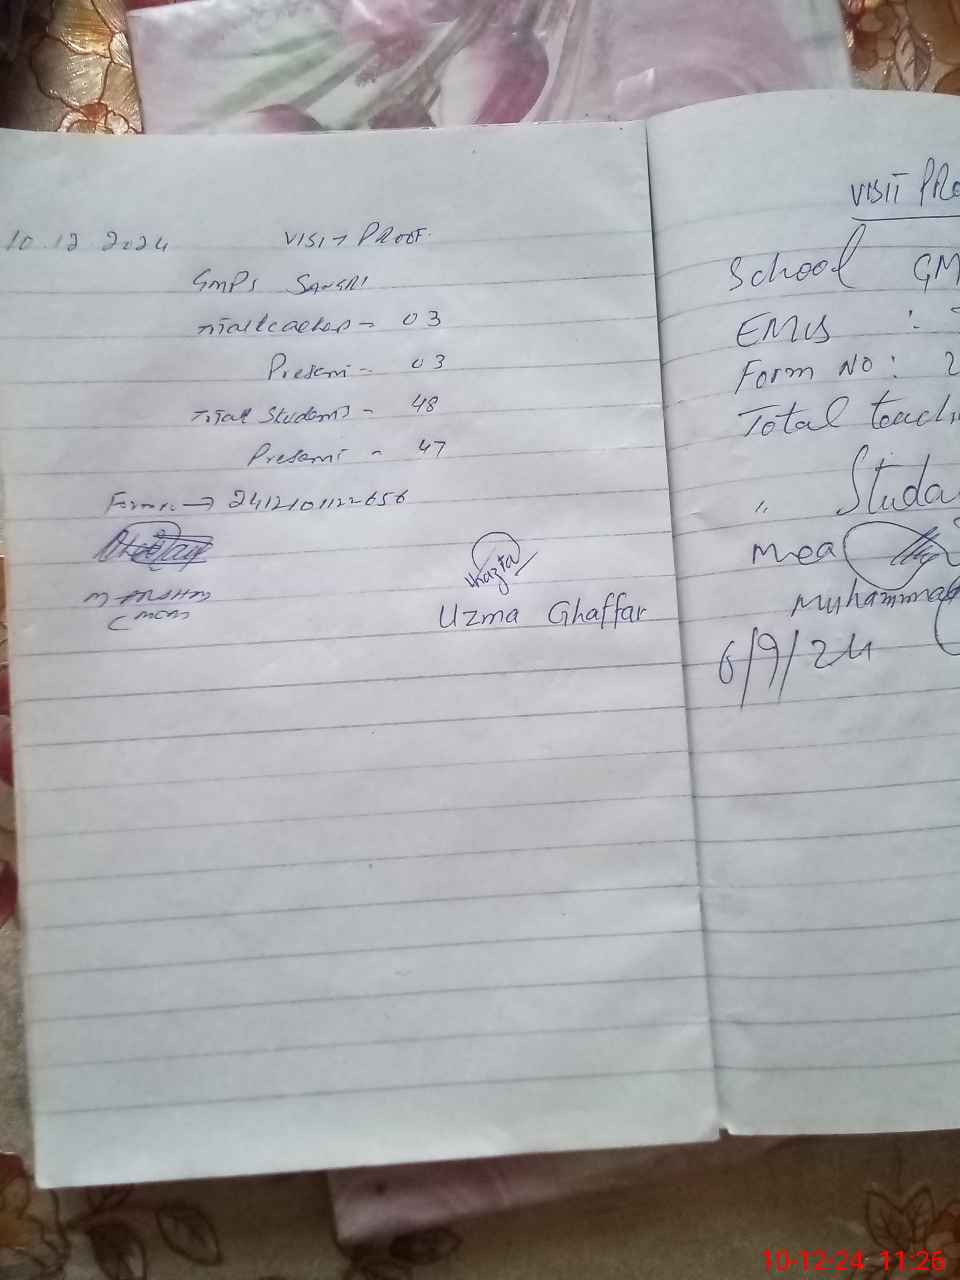 10.12.2024 VISIT PROOF
GMPS SANGRI
Total teachers - 03
Present - 03
Total Students - 48
Present - 47
Form → 2412101122656
Uzma Ghaffar
VISIT PRO
School GM
EMIS :
Form No: 2
Total teach
" Stude
Mea
Muhammad
6/9/24
10-12-24 11:26